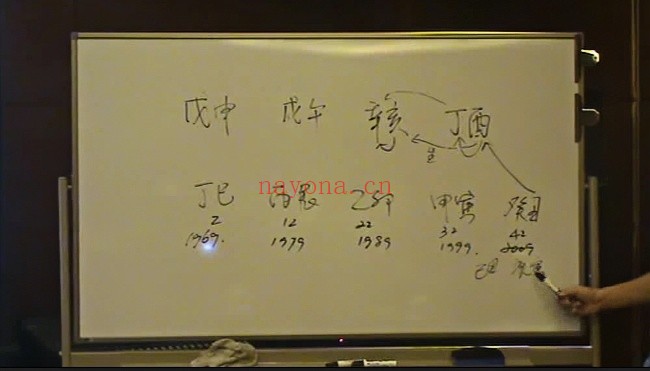 戊申 戊午 辛亥 丁酉
生
丁巳 丙辰 乙卯 甲寅 癸丑
nayona.cn
2 12 22 32 42
1969. 1979 1989 1999. 2009
己丑 庚寅